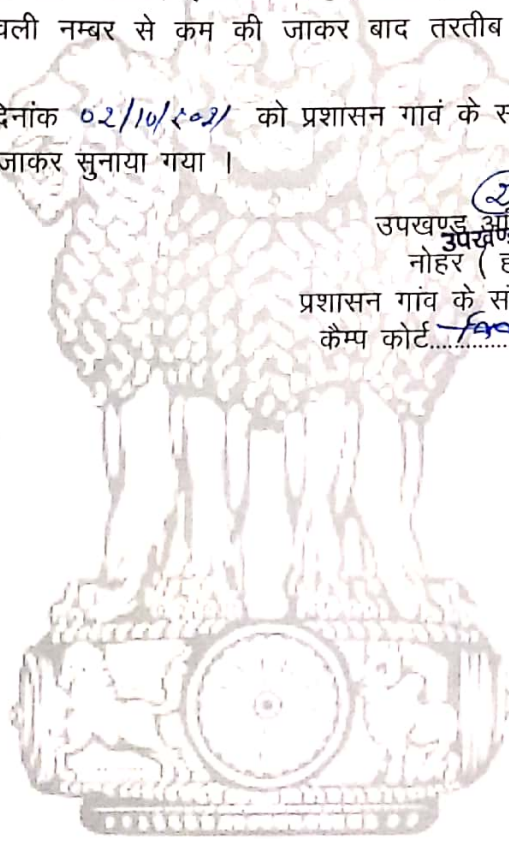 वली नम्बर से कम की जाकर बाद तरतीब
दिनांक 02/10/2021 को प्रशासन गावं के स
जाकर सुनाया गया ।
उपखण्ड
उपखण्ड
नोहर ( ह
प्रशासन गांव के सं
कैम्प कोर्ट